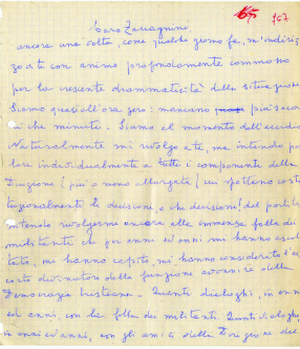 167
Caro Zaccagnini,
ancora una volta, come qualche giorno fa, m'indiriz
zo a te con animo profondamente commosso
per la crescente drammaticità della situazione.
Siamo quasi all'ora zero: mancano più secon
di che minuti. Siamo al momento dell'eccidio.
Naturalmente mi rivolgo a te, ma intendo par
lare individualmente a tutti i componenti della
Direzione (più o meno allargata) cui spettano costi
tuzionalmente le decisioni, e che decisioni! del partito.
Intendo rivolgermi ancora alla immensa folla dei
militanti che per anni ed anni mi hanno ascol
tato, mi hanno capito, mi hanno considerato l'ac
corto divinatore della funzione avvenire della
Democrazia Cristiana. Quanti dialoghi, in anni
ed anni, con la folla dei militanti. Quanti dialoghi,
in anni ed anni, con gli amici della Direzione del